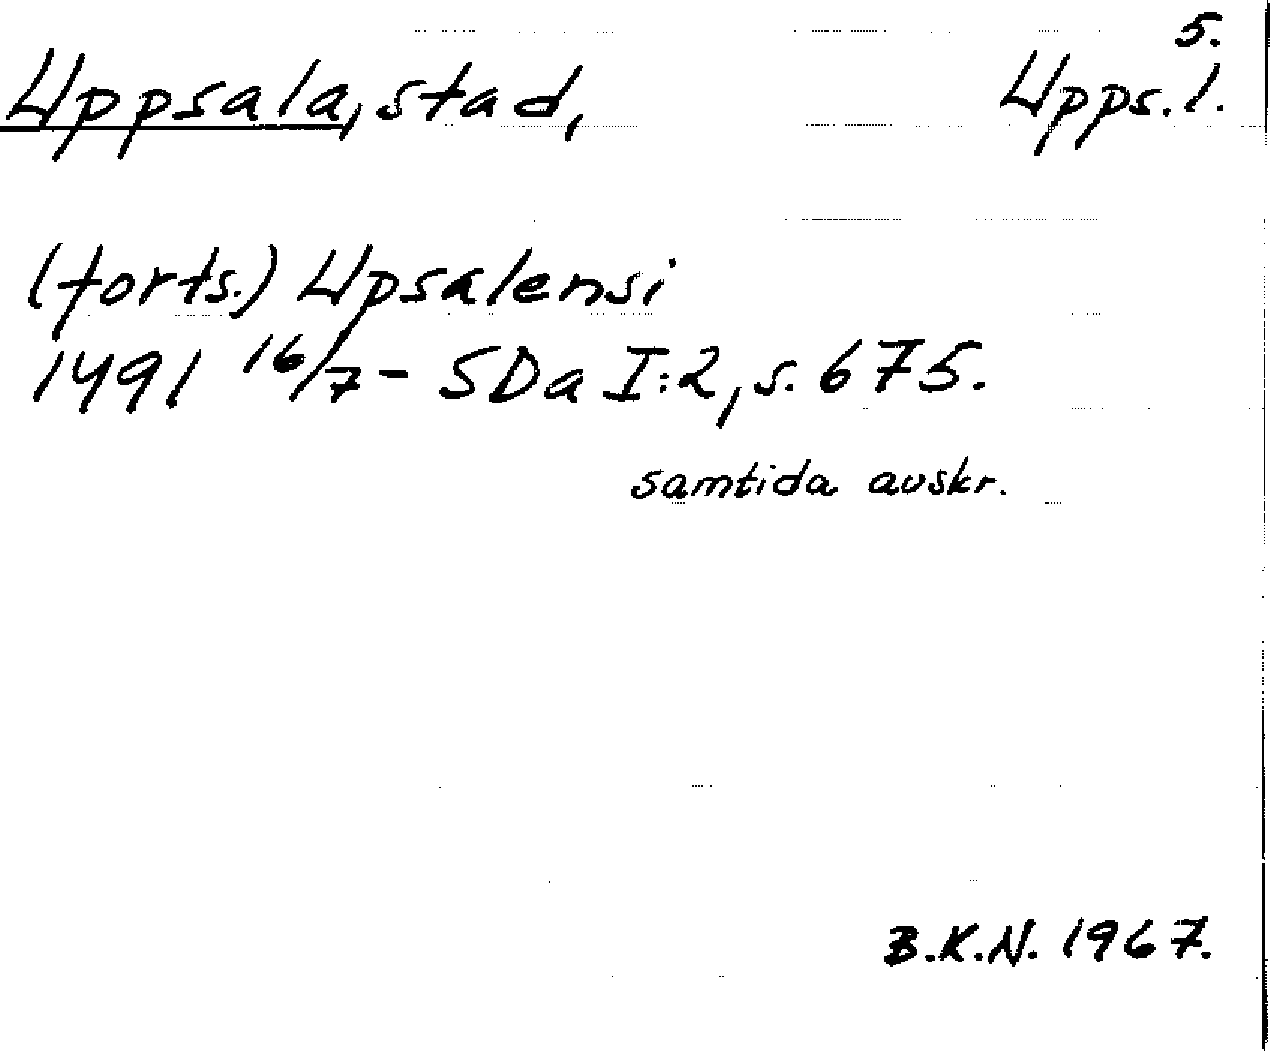 5.
Uppsala, stad, Upps. l.
(forts.) Upsalensi
1491 16/7 - SDa I:2, s. 675.
samtida avskr.
B.K.N. 1967.